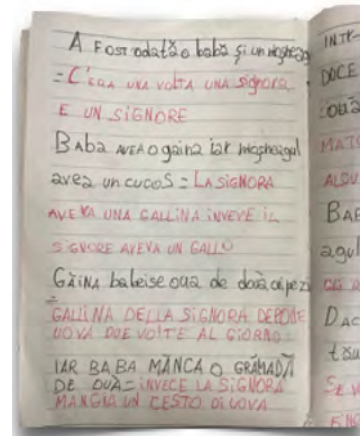 A FOST odată o babă și un moșneag
= C'ERA UNA VOLTA UNA SIGNORA
E UN SIGNORE
BABA AVEA O gaina iar moșneagul
avea un cucos = LA SIGNORA
AVEVA UNA GALLINA INVEVE IL
SIGNORE AVEVA UN GALLO
GĂINA babei se oua de două ori pe zi
=
GALLINA DELLA SIGNORA DEPONE
UOVA DUE VOLTE AL GIORNO
IAR BABA MÂNCA O GRĂMADĂ
DE OUĂ = INVECE LA SIGNORA
MANGIA UN CESTO DI UOVA
INTR-
DOCE
OUĂ
BAB
agul
DAC
SE V